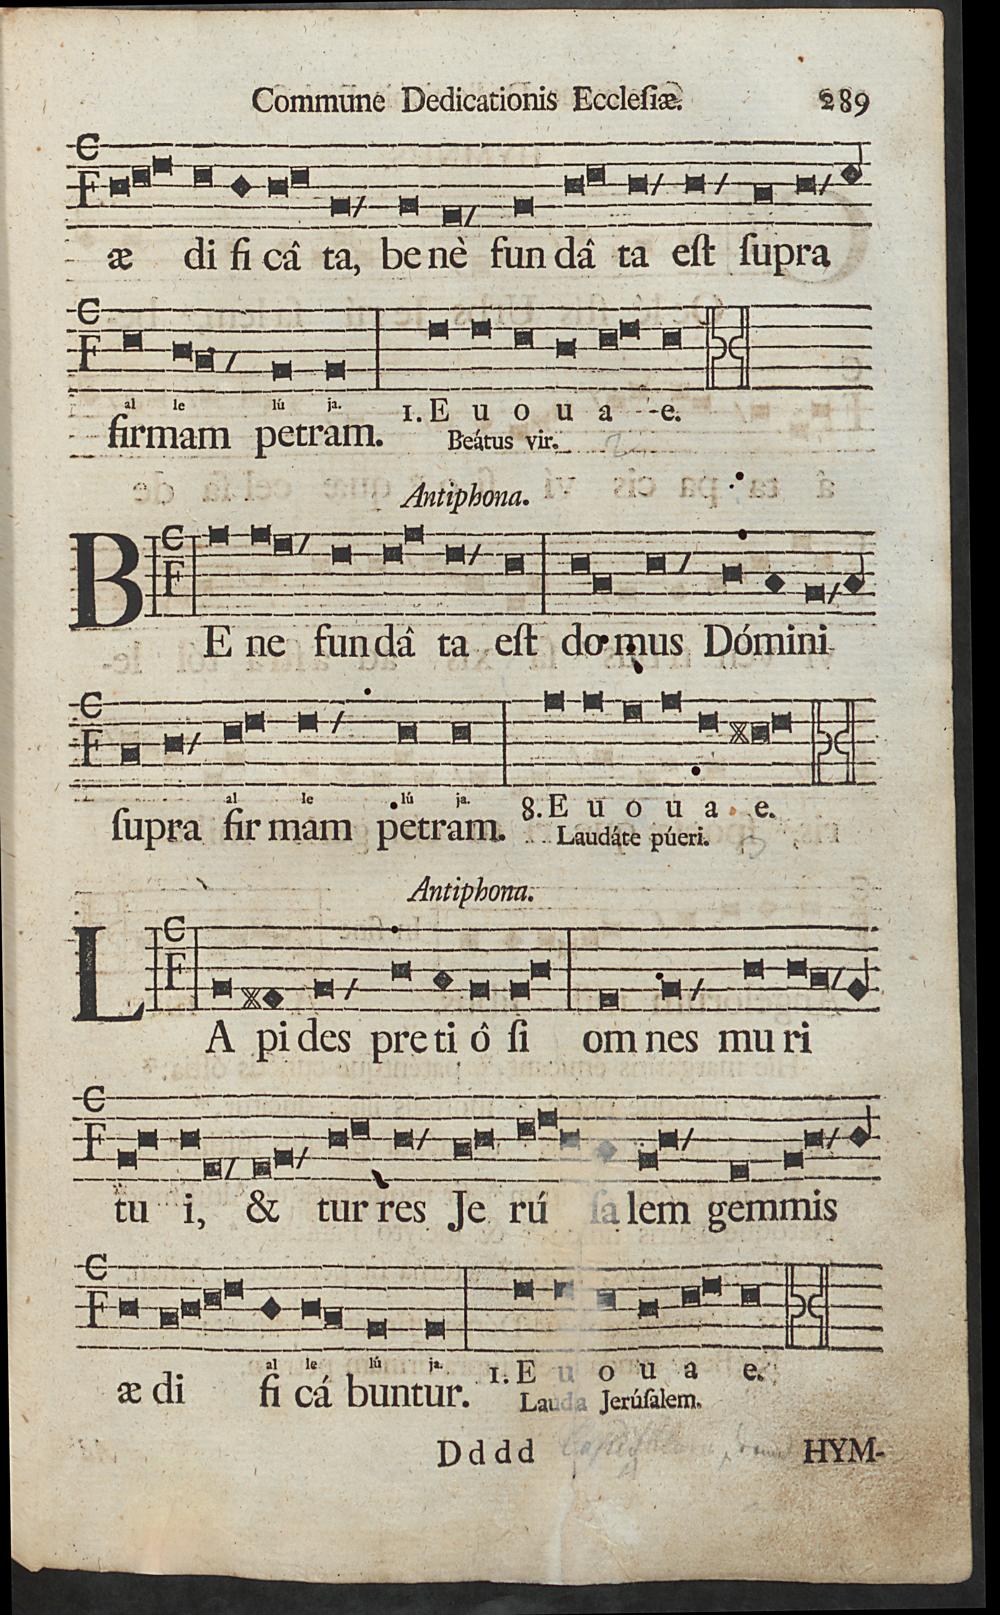 Commune Dedicationis Eccleſiæ. 289
æ di fi câ ta, be nè fun dâ ta eſt ſupra
al le lú ja. 1. E u o u a e.
firmam petram. Beátus vir.
Antiphona.
B E ne fun dâ ta eſt domus Dómini
al le lú ja. 8. E u o u a e.
ſupra fir mam petram. Laudáte púeri.
Antiphona.
L A pi des pre ti ô ſi om nes mu ri
tu i, & tur res Je rú ſa lem gemmis
al le lú ja. 1. E u o u a e.
æ di fi cá buntur. Lauda Jerúſalem.
D d d d HYM-